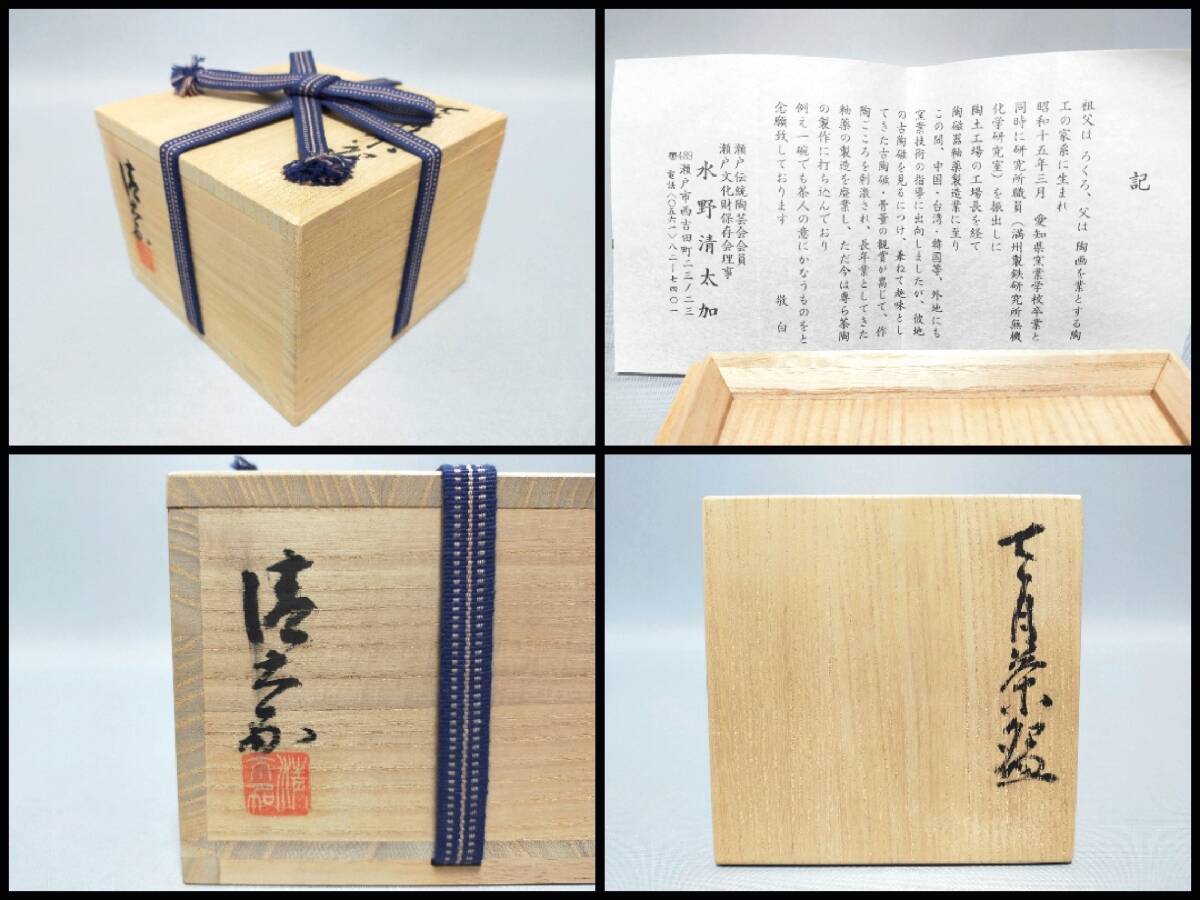 清太加
記
祖父は ろくろ、父は 陶画を業とする陶
工の家系に生まれ
昭和十五年三月 愛知県窯業学校卒業と
同時に研究所職員（満州製鉄研究所無機
化学研究室）を振出しに
陶土工場の工場長を経て
陶磁器釉薬製造業に至り
この間、中国・台湾・韓国等、外地にも
窯業技術の指導に出向しましたが、彼地
の古陶磁を見るにつけ、兼ねて趣味とし
てきた古陶磁・骨董の観賞が高じて、作
陶ごころを刺激され、長年業としてきた
釉薬の製造を廃業し、ただ今は専ら茶陶
の製作に打ち込んでおり
例え一碗でも茶人の意にかなうものをと
念願致しております
敬白
瀬戸伝統陶芸会会員
瀬戸文化財保存会理事
水野清太加
〒489 瀬戸市西吉田町二三ノ二三
電話（〇五六一）八二―七四〇一
清太加
清太加
天目茶碗